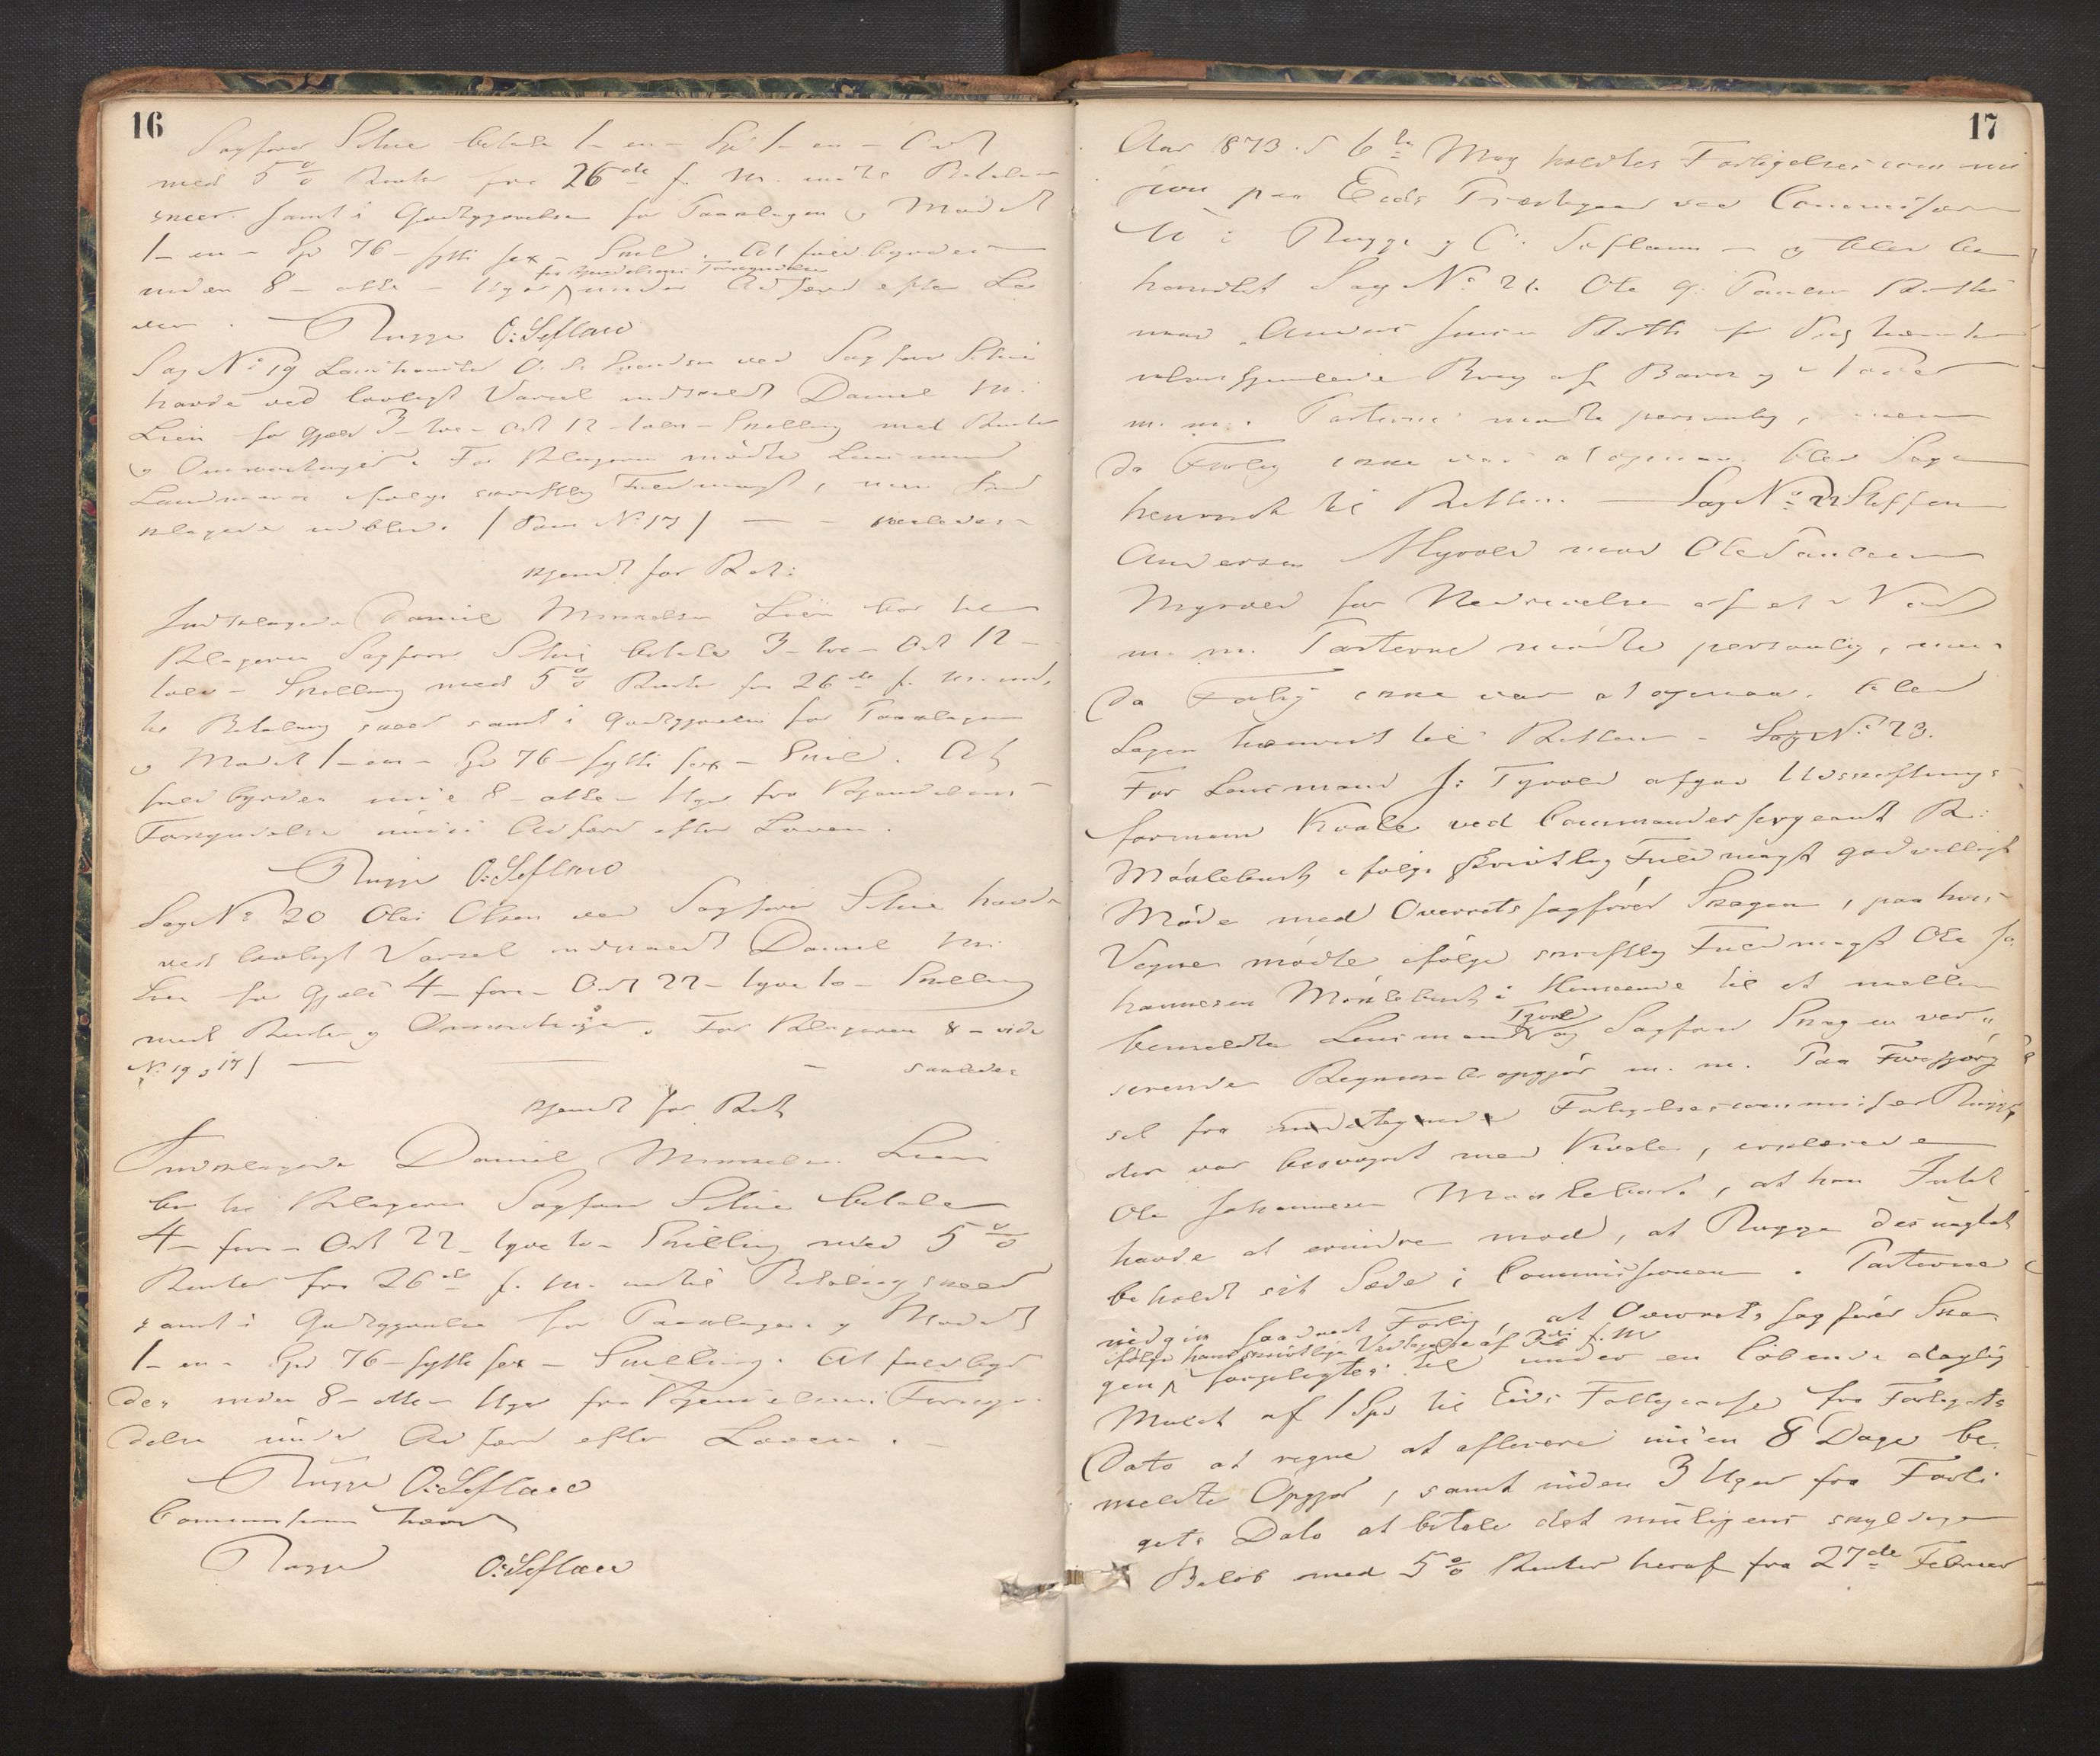 16
Sagfører Schie betale 1 - en - Spd 1 - en - Ort
med 5 % Renter fra 26de f. M. indtil Betaling
skeer samt i Godtgjørelse for Paaklagen og Mødet
1 - en - Spd 76 - sytti sex - Skil. At fuldbyrdes
inden 8 - otte - Uger under Adfærd efter Lo
for Kjendelsens Forkyndelse
ven. Rugge O: Seflaad
Sag No 19 Landhandler O. S. Svendsen ved Sagfører Schie
havde ved lovligt Varsel indkaldt Daniel M.
Lien for Gjæld 3 - tre - Ort 12 - tolv - Skilling med Renter
og Omkostninger. For Klageren mødte Lensmand
Landmark ifølge skriftlig Fuldmagt, men Ind
klagede udblev. / Som No 17 / — - saaledes
kjendt for Ret:
Indklagede Daniel Monsen Lien bør til
Klageren Sagfører Schie betale 3 - tre - Ort 12 -
tolv - Skilling med 5 % Renter fra 26de f. M. ind-
til Betaling skeer samt i Godtgjørelse for Paaklagen
og Mødet 1 - en - Spd 76 - sytti sex - Skil. At
fuldbyrdes inden 8 - otte - Uger fra Kjendelsens
Forkyndelse under Adfærd efter Loven.
Rugge O: Seflaad
Sag No 20 Olai Olsen ved Sagfører Schie havde
ved lovligt Varsel indkaldt Daniel M.
Lien for Gjæld 4 - fire - Ort 22 - tyve to - Skilling
med Renter og Omkostninger. For Klageren &c - vide
No 19 & 17 / — — - saaledes
kjendt for Ret
Indklagede Daniel Lien
bør til Klageren Sagfører Schie betale
4 - fire - Ort 22 - tyve to - Skilling med 5 %
Renter fra 26de f. M. indtil Betaling skeer
samt i Godtgjørelse for Paaklagen og Mødet
1 - en - Spd 76 - sytti sex - Skilling. At fuldbyr
des inden 8 - otte - Uger fra Kjendelsens Forkyn
delse under Adfærd efter Loven. -
Rugge O: Seflaad
Commissionen hævet
Rugge O: Seflaad
17
Aar 1873 d 6te May holdtes Forligelsescommis
sion paa Eids Præstegaard ved Commissærer
ne Rugge og O: Seflaad — og blev be
handlet Sag No 21. Ole
mod Anders
af
m. m. Parterne mødte personlig, men
da Forlig ikke var at opnaa blev Sagen
henvist til Retten. — Sag No 22 Steffen
Andersen Myrold mod Ole Paulsen
Myrold for Nedrivelse af et Ved
m. m. Parterne mødte personlig, men
da Forlig ikke var at opnaa, blev
Sagen henvist til Retten - Sag No 23.
For Lensmand J: Tyvold afgav Udskiftnings-
formand Kvale ved Commandersergeant R:
Maalebust ifølge skriftlig Fuldmagt godvilligt
Møde med Overretssagfører Skagen, paa hvis
Vegne mødte ifølge skriftlig Fuldmagt Ole Jo
hannesen Maalebust i Henseende til et mellem
bemeldte Lensmand Tyvold og Sagfører Skagen ver-
serende Regnskabsopgjør m. m. Paa Forespørg
sel fra undertegnede Forligelsescommissær Rugge,
der var besvogret med Kvale, erklærede
Ole Johannesen Maalebust, at han Intet
havde at erindre mod, at Rugge desuagtet
beholdt sit Sæde i Commissionen. Parterne
indgik saadant Forlig, at Overretssagfører Ska
ifølge hans skriftlige Vedtagelse af f. M
gen forpligtes til under en løbende daglig
Mulct af 1 Spd til Eids Fattigcasse fra Forligets
Dato at regne at aflevere inden 8 Dage be
meldte Opgjør, samt inden 3 Uger fra Forli
gets Dato at betale det muligens skyldige
Beløb med 5 % Renter heraf fra 27de Februar